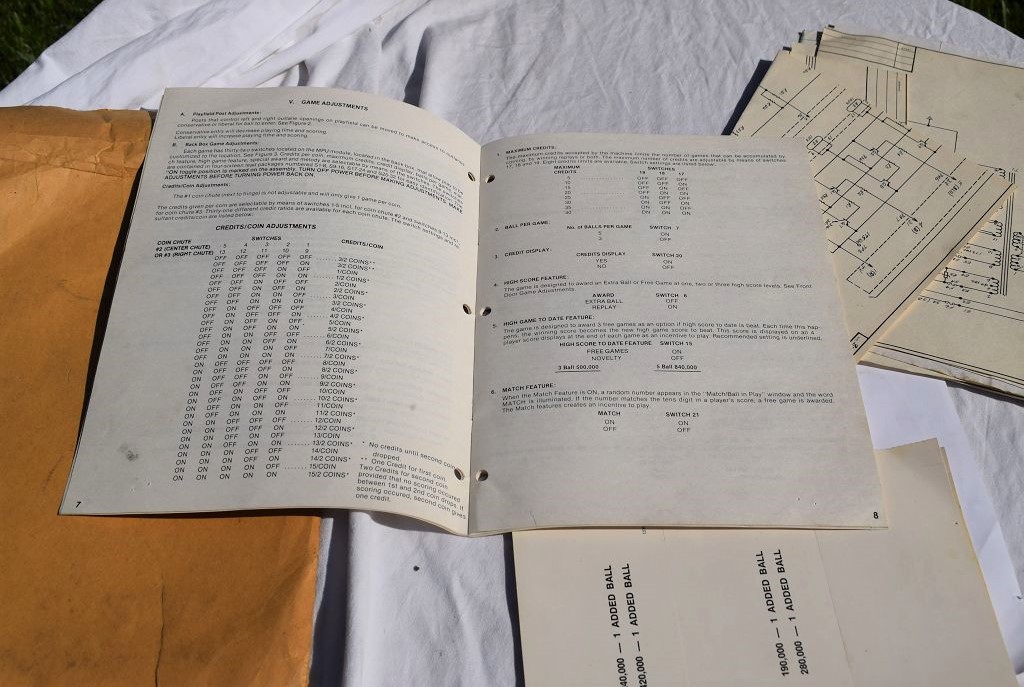 V. GAME ADJUSTMENTS
A. Playfield Post Adjustments:
Posts that control left and right outlane openings on playfield can be moved to make access to outlanes
conservative or liberal for ball to enter. See Figure 2.
Conservative entry will decrease playing time and scoring.
Liberal entry will increase playing time and scoring.
B. Back Box Game Adjustments:
Each game has thirty-two switches located on the MPU module, located in the back box
customized to the location. See Figure 3. Credits per coin, maximum credits,
ADJUSTMENTS BEFORE TURNING POWER BACK ON.
Credits/Coin Adjustments:
The #1 coin chute (next to hinge) is not adjustable and will only give 1 game per coin.
The credits given per coin are selectable by means of switches 1-5 incl. for coin chute #2 and switches 9-13 incl.
for coin chute #3. Thirty-one different credit ratios are available for each coin chute. The switch settings and re-
sultant credits/coin are listed below:
CREDITS/COIN ADJUSTMENTS
COIN CHUTE SWITCHES CREDITS/COIN
#2 (CENTER CHUTE) 5 4 3 2 1
OR #3 (RIGHT CHUTE) 13 12 11 10 9
OFF OFF OFF OFF OFF ...... 3/2 COINS**
OFF OFF OFF OFF ON ...... 3/2 COINS**
OFF OFF OFF ON OFF ...... 1/COIN
OFF OFF OFF ON ON ...... 1/2 COINS*
OFF OFF ON OFF OFF ...... 2/COIN
OFF OFF ON OFF ON ...... 2/2 COINS*
OFF OFF ON ON OFF ...... 3/COIN
OFF OFF ON ON ON ...... 3/2 COINS*
OFF ON OFF OFF OFF ...... 4/COIN
OFF ON OFF OFF ON ...... 4/2 COINS*
OFF ON OFF ON OFF ...... 5/COIN
OFF ON OFF ON ON ...... 5/2 COINS*
OFF ON ON OFF OFF ...... 6/COIN
OFF ON ON OFF ON ...... 6/2 COINS*
OFF ON ON ON OFF ...... 7/COIN
OFF ON ON ON ON ...... 7/2 COINS*
ON OFF OFF OFF OFF ...... 8/COIN
ON OFF OFF OFF ON ...... 8/2 COINS*
ON OFF OFF ON OFF ...... 9/COIN
ON OFF OFF ON ON ...... 9/2 COINS*
ON OFF ON OFF OFF ...... 10/COIN
ON OFF ON OFF ON ...... 10/2 COINS*
ON OFF ON ON OFF ...... 11/COIN
ON OFF ON ON ON ...... 11/2 COINS*
ON ON OFF OFF OFF ...... 12/COIN
ON ON OFF OFF ON ...... 12/2 COINS*
ON ON OFF ON OFF ...... 13/COIN
ON ON OFF ON ON ...... 13/2 COINS*
ON ON ON OFF OFF ...... 14/COIN
ON ON ON OFF ON ...... 14/2 COINS*
ON ON ON ON OFF ...... 15/COIN
ON ON ON ON ON ...... 15/2 COINS*
* No credits until second coin
dropped.
** One Credit for first coin.
Two Credits for second coin
provided that no scoring occured
between 1st and 2nd coin drops. If
scoring occured, second coin gives
one credit.
7
1. MAXIMUM CREDITS:
MAXIMUM SWITCHES
CREDITS 19 18 17
5 OFF OFF OFF
10 OFF OFF ON
15 OFF ON OFF
20 OFF ON ON
25 ON OFF OFF
30 ON OFF ON
35 ON ON OFF
40 ON ON ON
2. BALL PER GAME:
No. of BALLS PER GAME SWITCH 7
5 ON
3 OFF
3. CREDIT DISPLAY:
CREDITS DISPLAY SWITCH 20
YES ON
NO OFF
4. HIGH SCORE FEATURE:
The game is designed to award an Extra Ball or Free Game at one, two or three high score levels. See Front
Door Game Adjustments.
AWARD SWITCH 6
EXTRA BALL OFF
REPLAY ON
5. HIGH GAME TO DATE FEATURE:
The game is designed to award 3 free games as an option if high score to date is beat. Each time this hap-
pens, the winning score becomes the new high game score to beat. This score is displayed on all 4
player score displays at the end of each game as an incentive to play. Recommended setting is underlined.
HIGH SCORE TO DATE FEATURE SWITCH 15
FREE GAMES ON
NOVELTY OFF
3 Ball 500,000 5 Ball 840,000
6. MATCH FEATURE:
When the Match Feature is ON, a random number appears in the "Match/Ball in Play" window and the word
MATCH is illuminated. If the number matches the tens digit in a player's score, a free game is awarded.
The Match features creates an incentive to play.
MATCH SWITCH 21
ON ON
OFF OFF
8
40,000 — 1 ADDED BALL
20,000 — 1 ADDED BALL
190,000 — 1 ADDED BALL
280,000 — 1 ADDED BALL